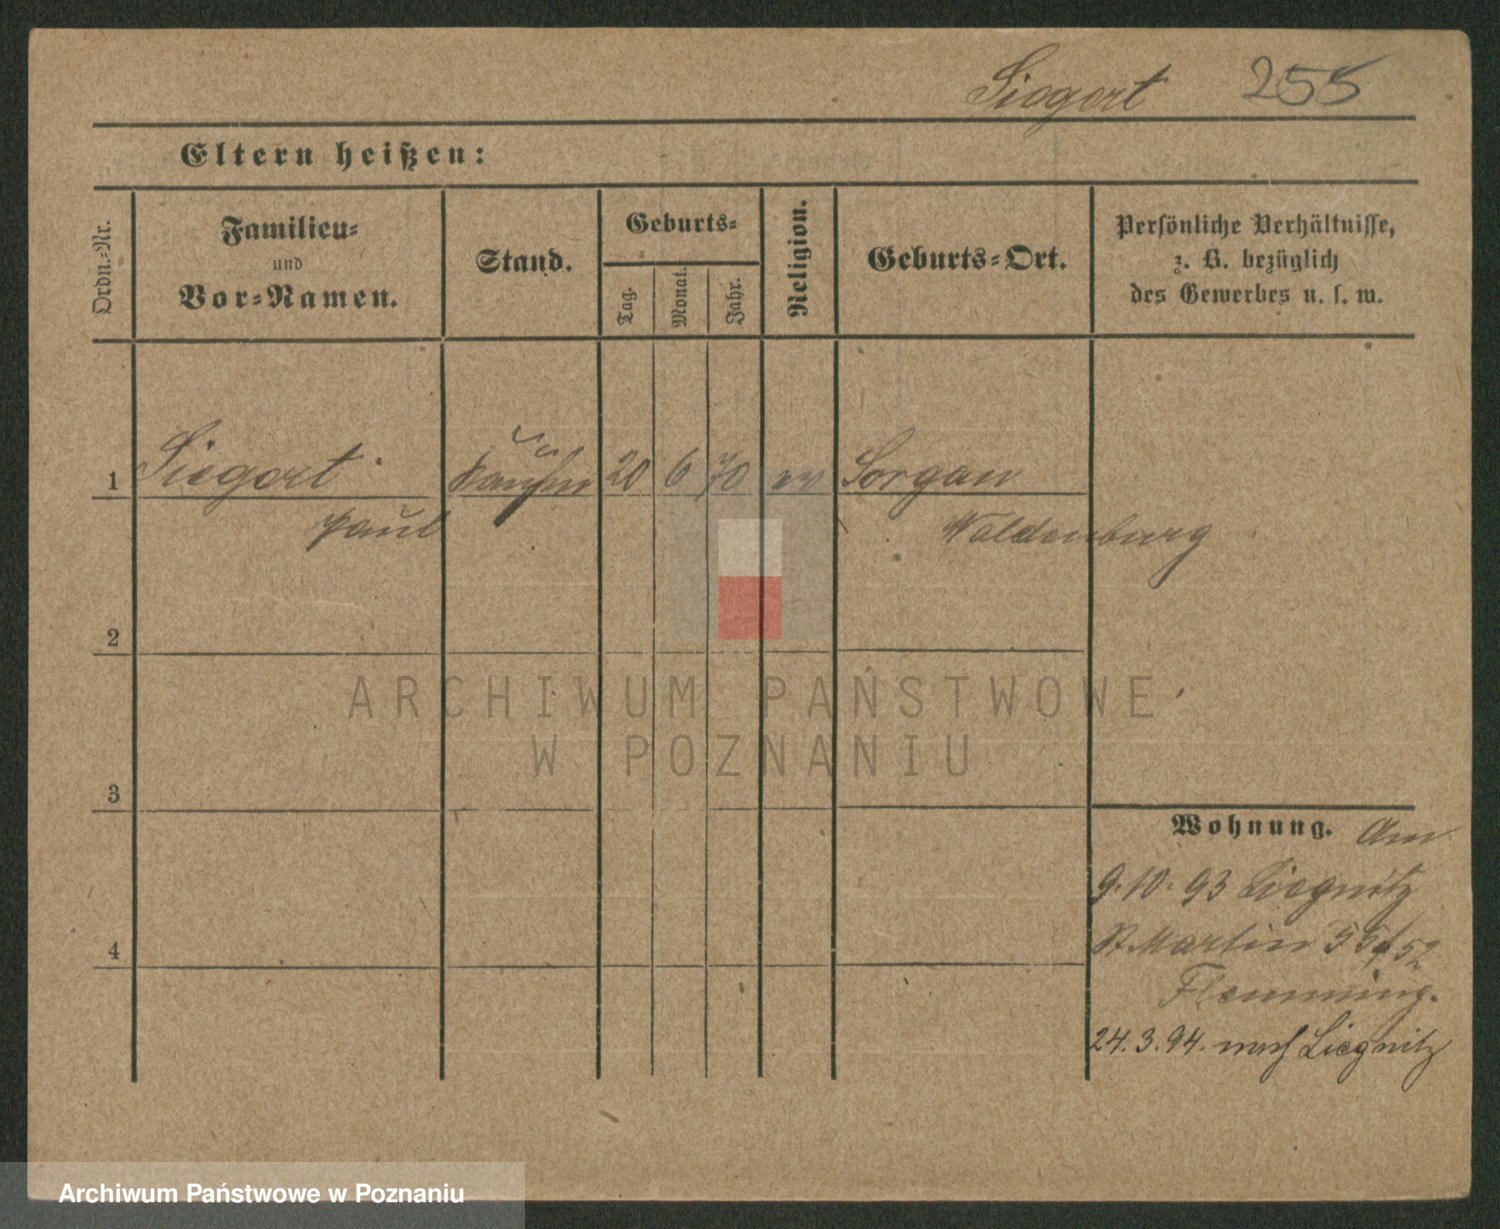 Siegert 255
Eltern heißen:
Ordn.-Nr.
Familien-
und
Vor-Namen.
Stand.
Geburts-
Tag.
Monat.
Jahr.
Religion.
Geburts-Ort.
Persönliche Verhältnisse,
z. B. bezüglich
des Gewerbes u. s. w.
1 Siegert 20 6 70 ev Sorgau
Paul Waldenburg
2
3
4
Wohnung. Am
9. 10. 93 Liegnitz
St Martin
Flemming.
24. 3. 94. nach Liegnitz
ARCHIWUM PAŃSTWOWE
W POZNANIU
Archiwum Państwowe w Poznaniu